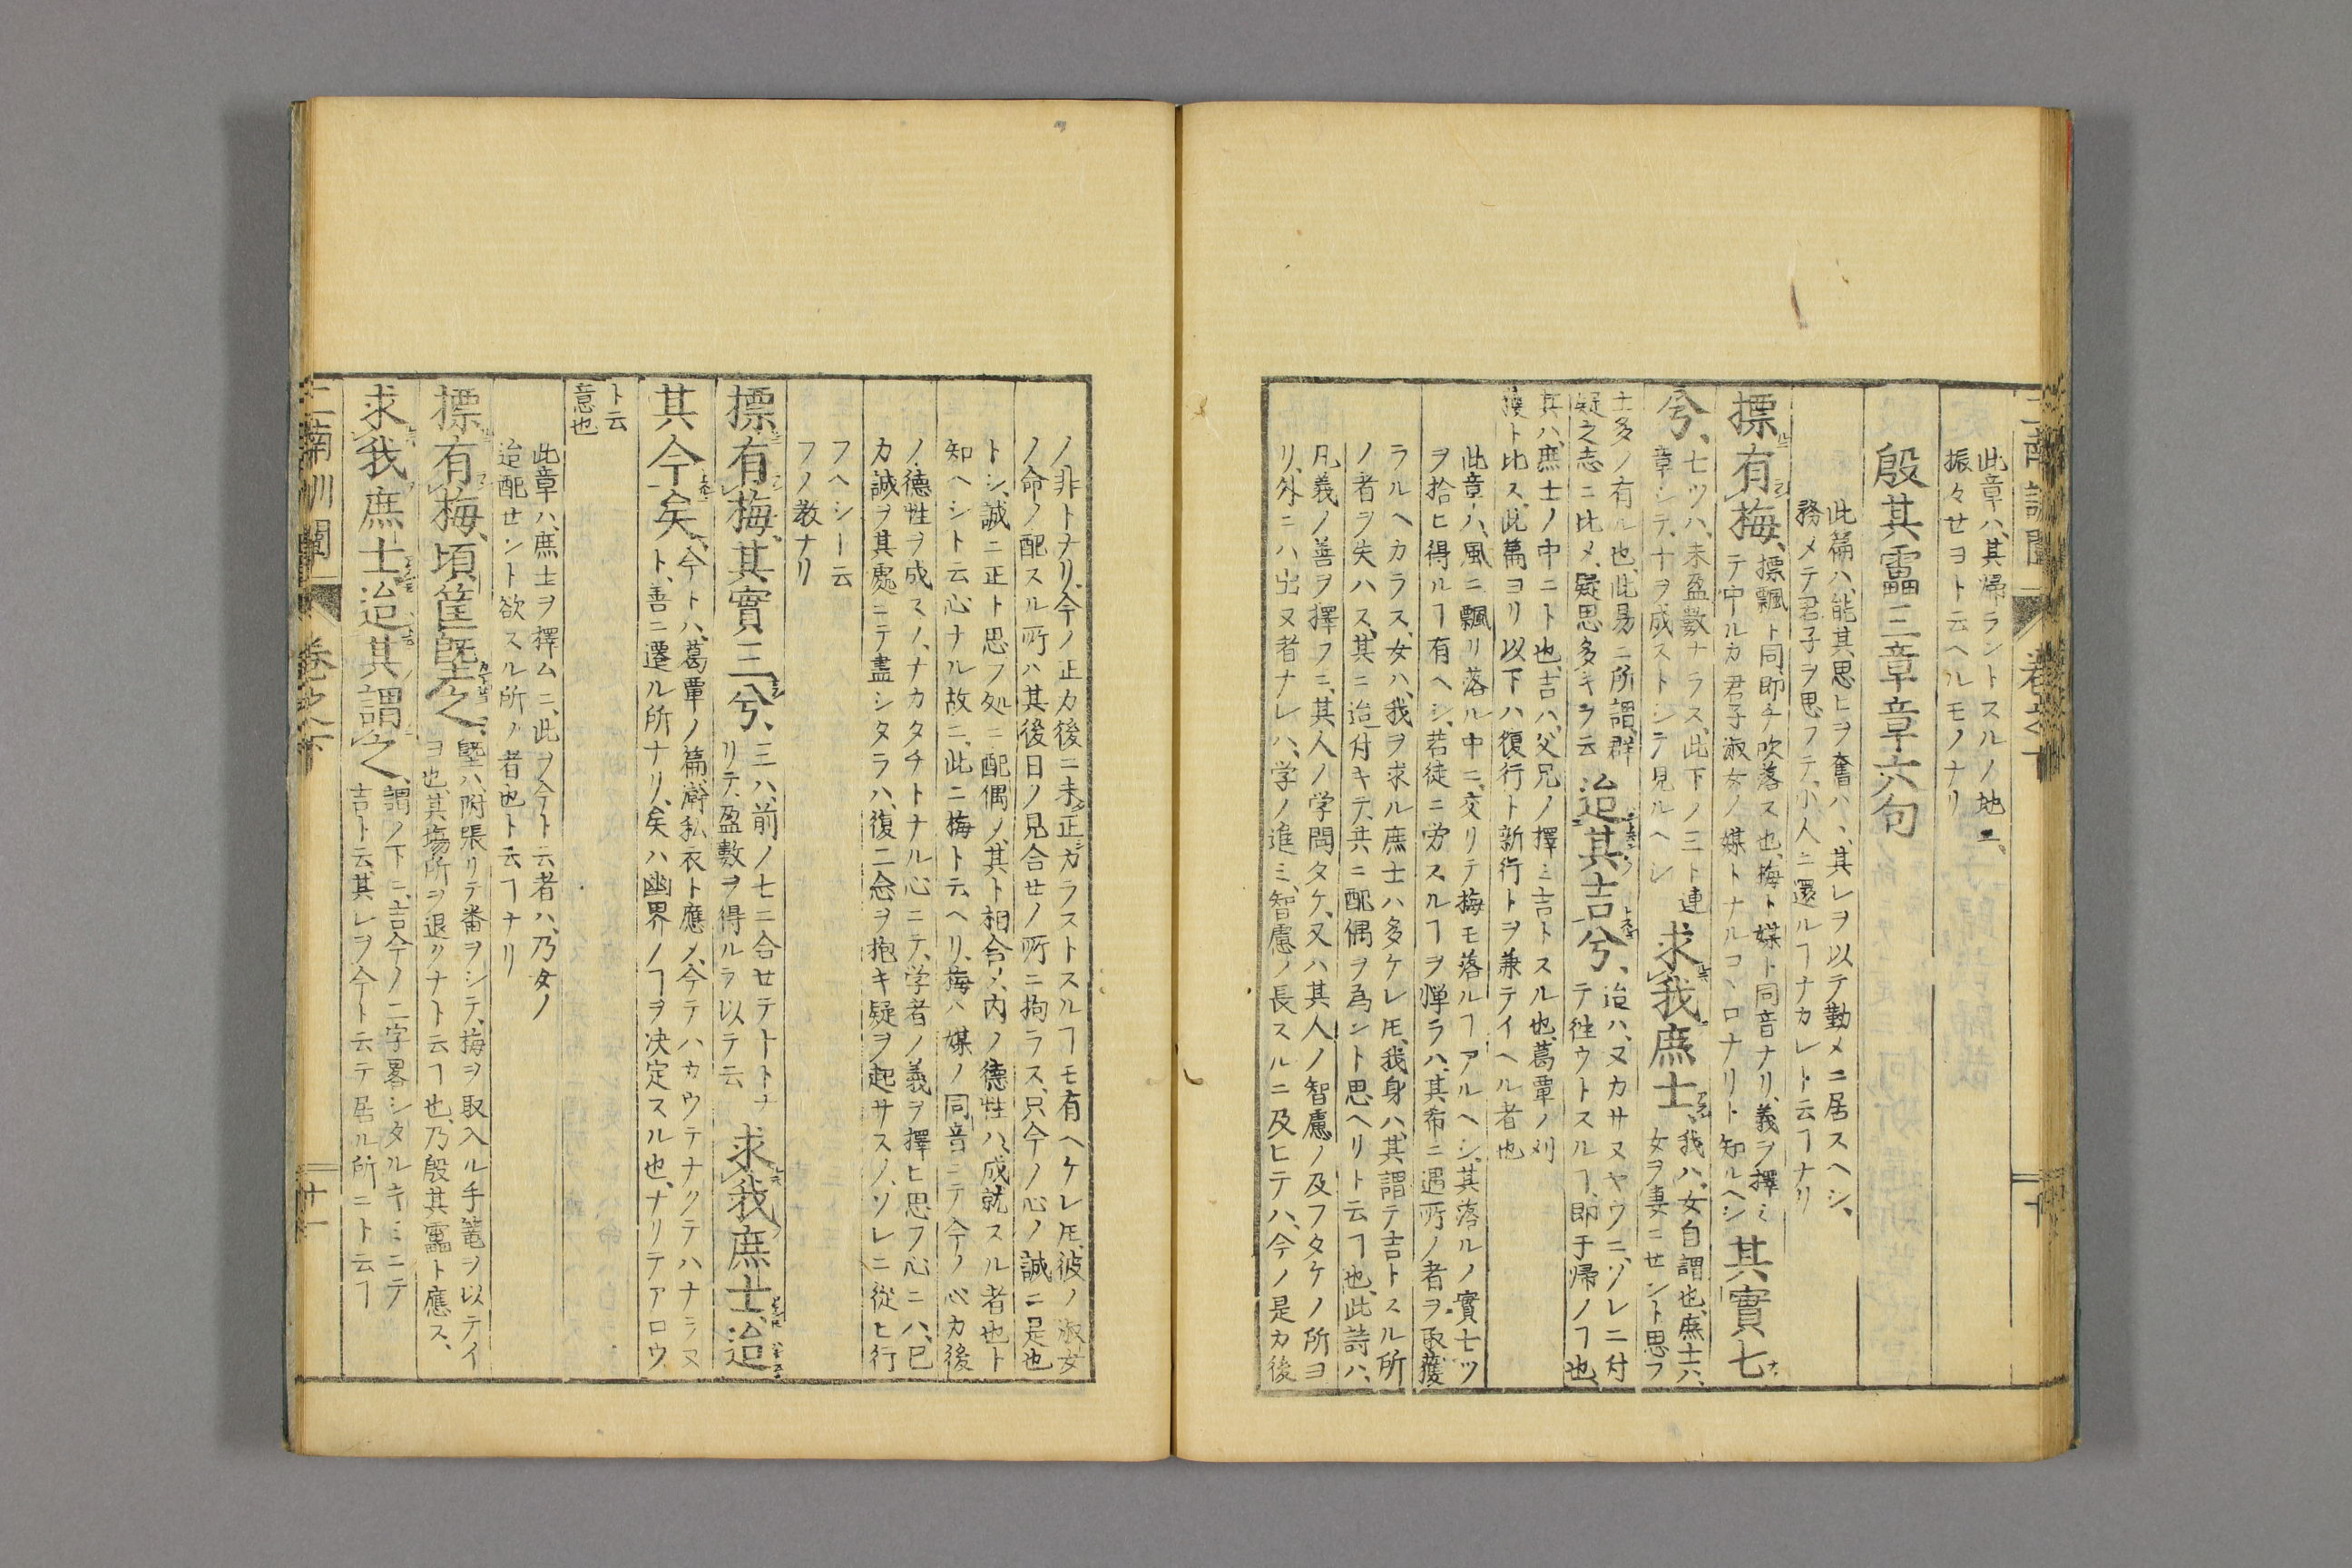 此章ハ、其歸ラントスルノ地ニ、
振々セヨト云ヘルモノナリ
殷其靁三章章六句
此篇ハ、能其思ヒヲ奮ハヽ、其レヲ以テ勤メニ居スヘシ、
務メテ君子ヲ思フテ、小人ニ還ルヿナカレト云ヿナリ
摽有梅、
摽飄ト同即チ吹落ス也、梅ト媒ト同音ナリ、義ヲ擇ミ
テ中ルカ君子淑女ノ媒トナルコヽロナリト知ルヘシ
其實七
兮、
七ツハ、未盈數ナラス、此下ノ三ト連
章シテ、十ヲ成ストシテ見ルヘシ
求我庶士、
我ハ、女自謂也、庶士ハ、
女ヲ妻ニセント思フ
士多ノ有ル也、此易ニ所謂、群
疑之志ニ比メ、疑思多キヲ云
迨其吉兮、
迨ハ、ヌカサヌヤウニ、ソレニ付
テ往ウトスルヿ、即于歸ノヿ也、
其ハ、庶士ノ中ニト也、吉ハ、父兄ノ擇ミ吉トスル也、葛覃ノ刈
濩ト比ス、此篇ヨリ以下ハ復行ト新行トヲ兼テイヘル者也
此章ハ、風ニ飄リ落ル中ニ、交リテ梅モ落ルヿアルヘシ、其落ルノ實七ツ
ヲ拾ヒ得ルヿ有ヘシ、若徒ニ労スルヿヲ憚ラハ、其希ニ遇所ノ者ヲ取獲
ラルヘカラス、女ハ、我ヲ求ル庶士ハ多ケレ𪜈、我身ハ、其謂テ吉トスル所
ノ者ヲ失ハス、其ニ迨付キテ、共ニ配偶ヲ為ント思ヘリト云ヿ也、此詩ハ、
凡義ノ善ヲ擇フニ、其人ノ学問タケ、又ハ其人ノ智慮ノ及フタケノ所ヨ
リ、外ニハ出ヌ者ナレハ、学ノ進ミ、智慮ノ長スルニ及ヒテハ、今ノ是カ後
ノ非トナリ、今ノ正カ後ニ未正カラストスルヿモ有ヘケレ𪜈、彼ノ淑女
ノ命ノ配スル所ハ其後日ノ見合セノ所ニ拘ラス、只今ノ心ノ誠ニ是也
トシ、誠ニ正ト思フ処ニ配偶ノ、其ト相合ノ、内ノ德性ハ、成就スル者也ト
知ヘシト云心ナル故ニ、此ニ梅ト云ヘリ、梅ハ媒ノ同音ニテ今ノ心カ後
ノ德性ヲ成スノ、ナカタチトナル心ニテ、学者ノ義ヲ擇ヒ思フ心ニハ、已
カ誠ヲ其處ニテ盡シタラハ、復二念ヲ抱キ疑ヲ起サスノ、ソレニ從ヒ行
フヘシト云
フノ教ナリ
摽有梅、其實三兮、
三ハ、前ノ七ニ合セテ十トナ
リテ、盈數ヲ得ルヲ以テ云
求我庶士、迨
其今矣、
今トハ、葛覃ノ篇澣私衣ト應ノ、今テハカウテナクテハナラヌ
ト、善ニ遷ル所ナリ、矣ハ幽界ノヿヲ決定スル也、ナリテアロウ
ト云
意也
此章ハ、庶士ヲ擇ムニ、此ヲ今ト云者ハ、乃タノ
迨配セント欲スル所ノ者也ト云ヿナリ
摽有梅、頃筐塈之、
塈ハ、附張リテ番ヲシテ、梅ヲ取入ル手篭ヲ以テイ
ヨ也、其塲所ヲ退クナト云ヿ也、乃殷其靁ト應ス、
求我庶士、迨其謂之、
謂ノ下ニ、吉今ノ二字畧シタルキミニテ
吉ト云、其レヲ今ト云テ居ル所ニト云ヿ
二南訓闡 卷之下 十一